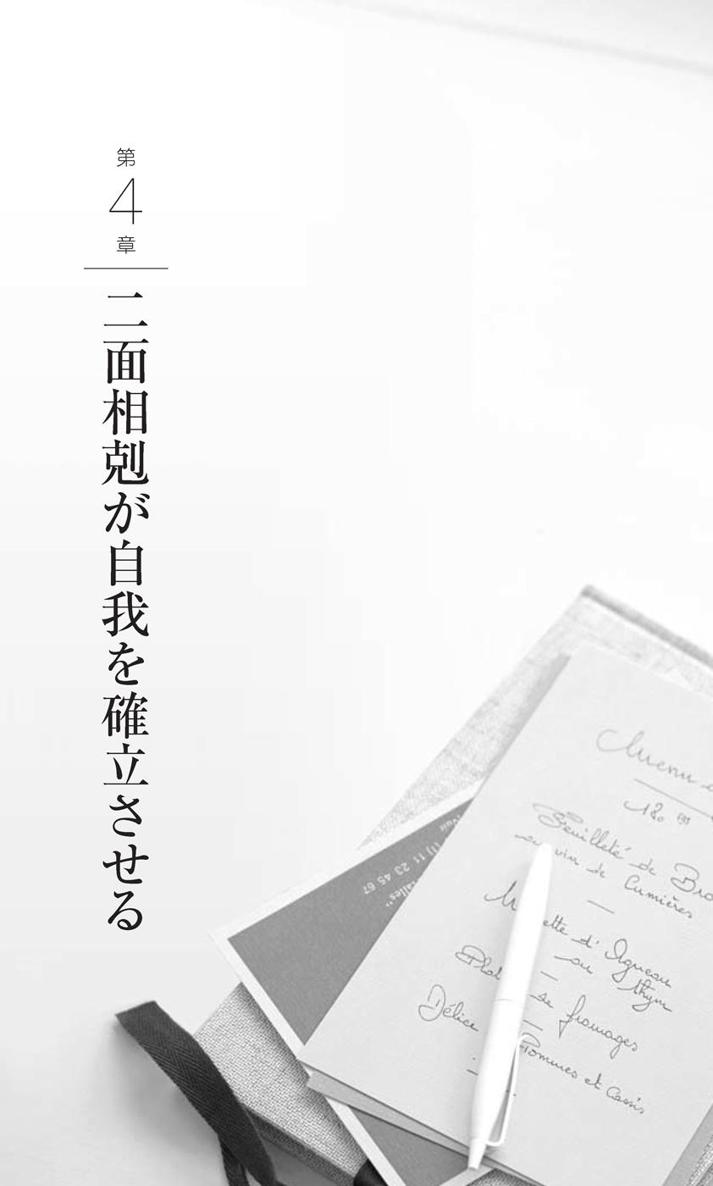 第
4
章
二面相剋が自我を確立させる
Menu
180 Frs
Feuilleté de Bro
au vin de Lumières
Noisette d'Agneau
au thym
Plat de fromages
Délice Pommes et Cassis
(1) 11 23 45 67